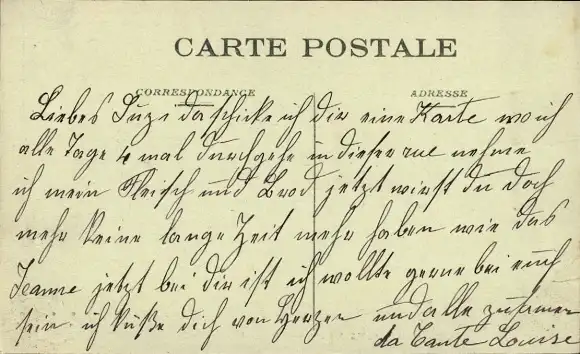 CARTE POSTALE
CORRESPONDANCE
ADRESSE
Liebes Suzi da schicke ich dir eine Karte wo ich
alle Tage 4 mal durchgehe in dieser rue nehme
ich mein Fleisch und Brod jetzt wirst du doch
mehr keine lange Zeit mehr haben wie das
Jeanne jetzt bei dir ist ich wollte gerne bei euch
sein ich küße dich von Herzen und alle zusamen
da Tante Louise